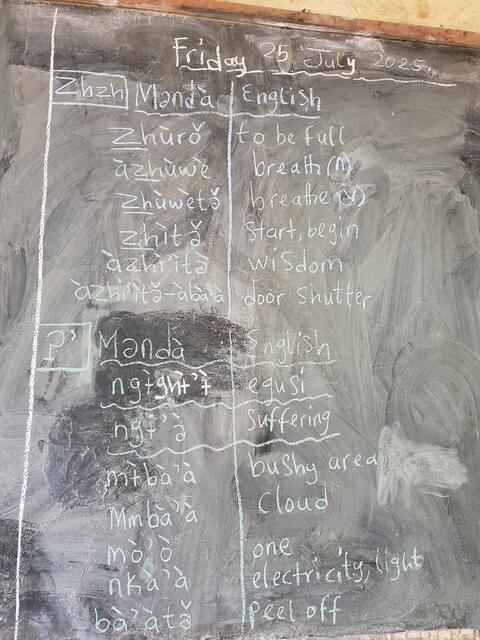 Friday 25 July 2025.
Zhzh Məndà English
Zhùrə̌ to be full
àzhùwè breath (n)
Zhùwètə̌ breathe (v)
Zhìtə̌ start, begin
àzhi'ità wisdom
àzhi'ità-abà'à door shutter
Məndà English
ngɨghɨ'ɨ egusi
ngɨ'à suffering
mɨbà'à bushy area
Mmbà'à Cloud
mò'ò one
nkà'à electricity, light
bà'àtə̌ peel off